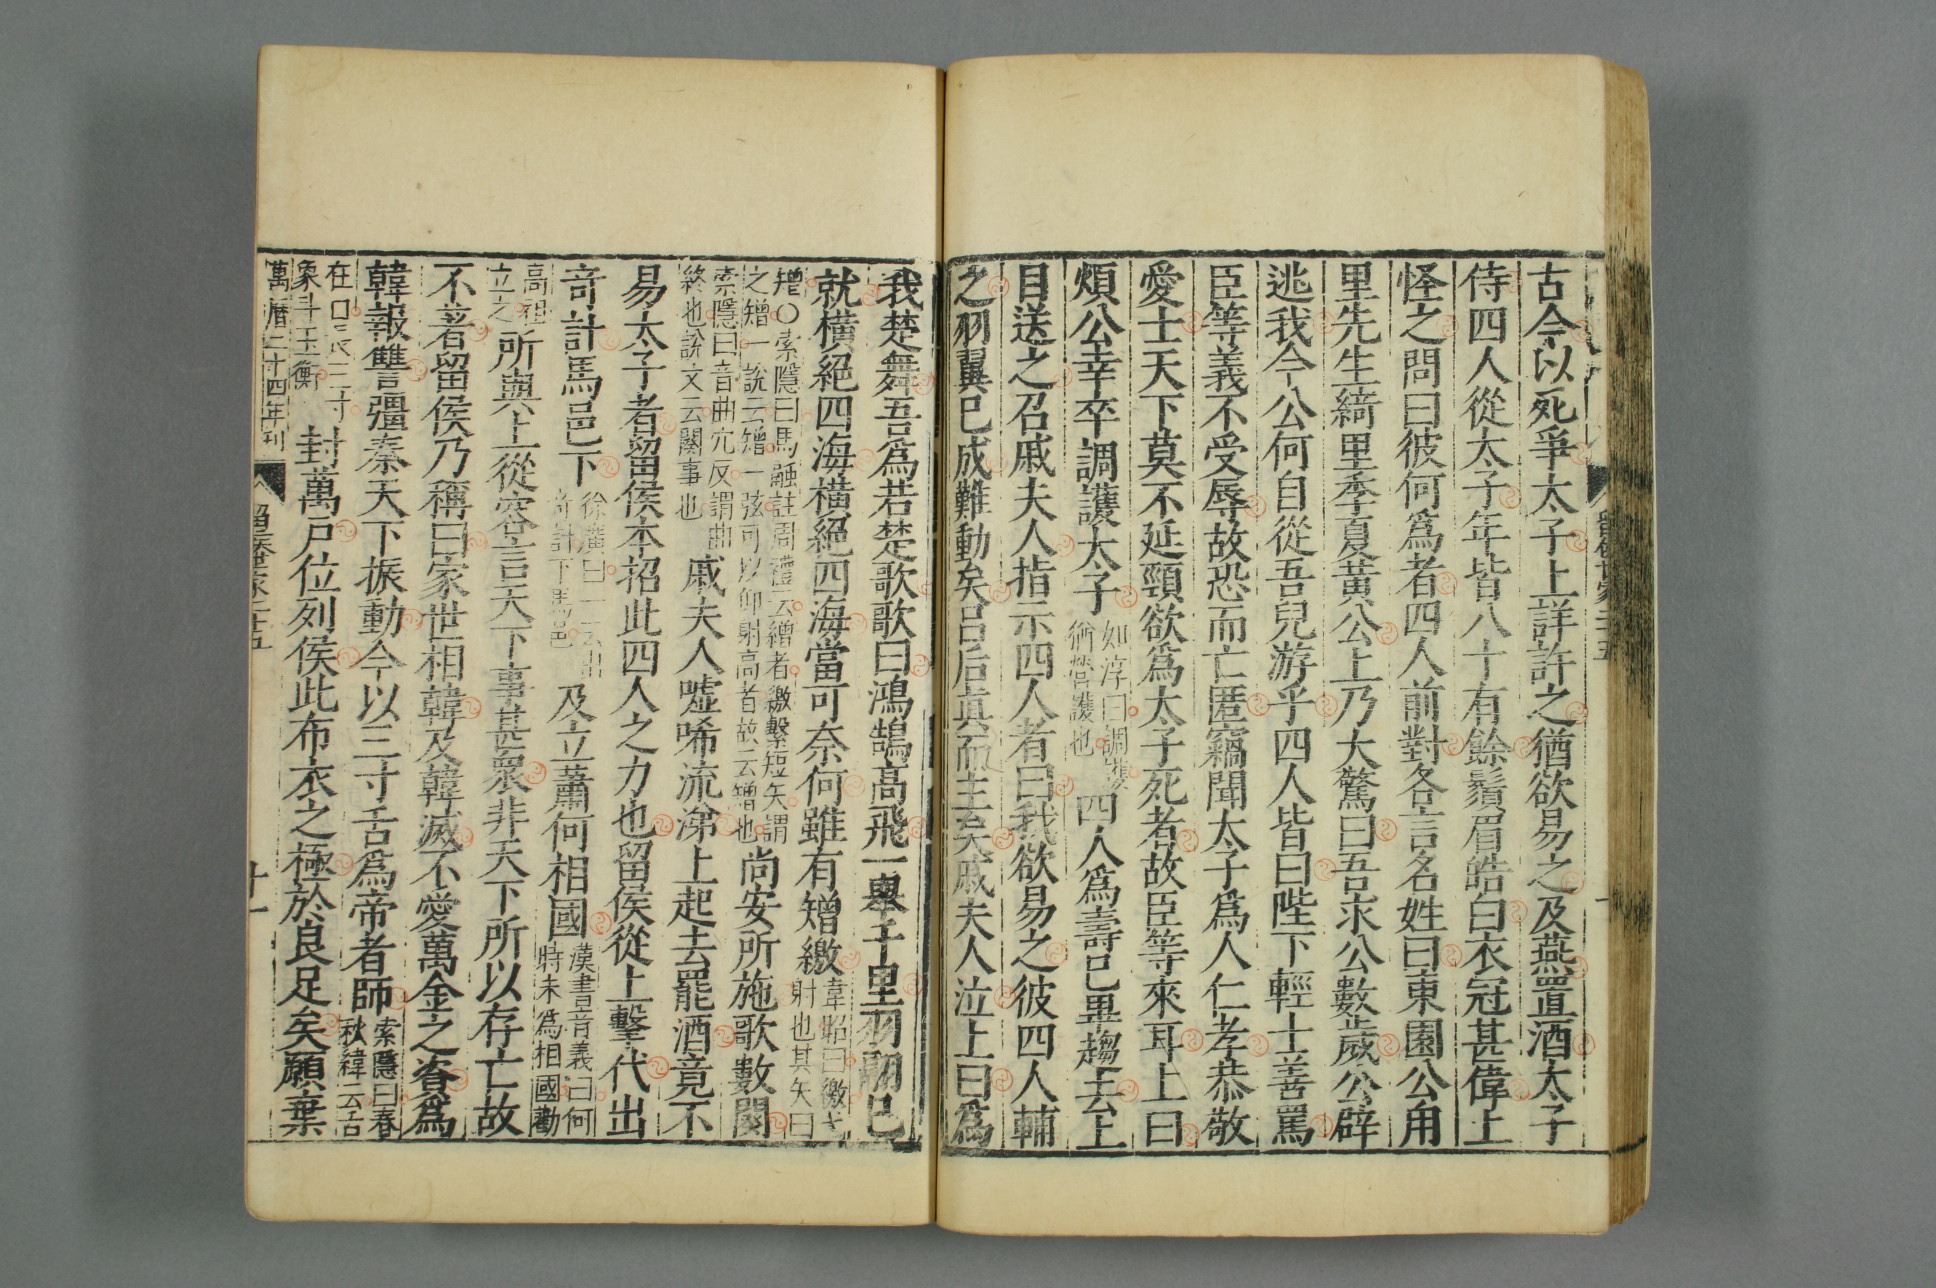 古今以死爭太子上詳許之猶欲易之及燕置酒太子
侍四人從太子年皆八十有餘鬚眉皓白衣冠甚偉上
怪之問曰彼何爲者四人前對各言名姓曰東園公甪
里先生綺里季夏黃公上乃大驚曰吾求公數歲公辟
逃我今公何自從吾兒游乎四人皆曰陛下輕士善罵
臣等義不受辱故恐而亡匿竊聞太子爲人仁孝恭敬
愛士天下莫不延頸欲爲太子死者故臣等來耳上曰
煩公幸卒調護太子如淳曰調護猶營護也四人爲壽已畢趨去上
目送之召戚夫人指示四人者曰我欲易之彼四人輔
之羽翼已成難動矣呂后真而主矣戚夫人泣上曰爲
我楚舞吾爲若楚歌歌曰鴻鵠高飛一舉千里羽翮已
就橫絕四海橫絕四海當可奈何雖有矰繳韋昭曰繳弋射也其矢曰
矰○索隱曰馬融註周禮云矰者繳繫短矢謂之矰一說云矰一弦可以仰射高者故云矰也尚安所施歌數闋
索隱曰音曲亢反謂曲終也說文云闋事也戚夫人噓唏流涕上起去罷酒竟不
易太子者留侯本招此四人之力也留侯從上擊代出
奇計馬邑下徐廣曰一云出奇計下馬邑及立蕭何相國漢書音義曰何時未爲相國勸
高祖立之所與上從容言天下事甚衆非天下所以存亡故
不著留侯乃稱曰家世相韓及韓滅不愛萬金之資爲
韓報讐彊秦天下振動今以三寸舌爲帝者師索隱曰春秋緯云舌
在口長三寸象斗玉衡封萬戶位列侯此布衣之極於良足矣願棄
萬曆二十四年刊
留侯世家二十五
十一